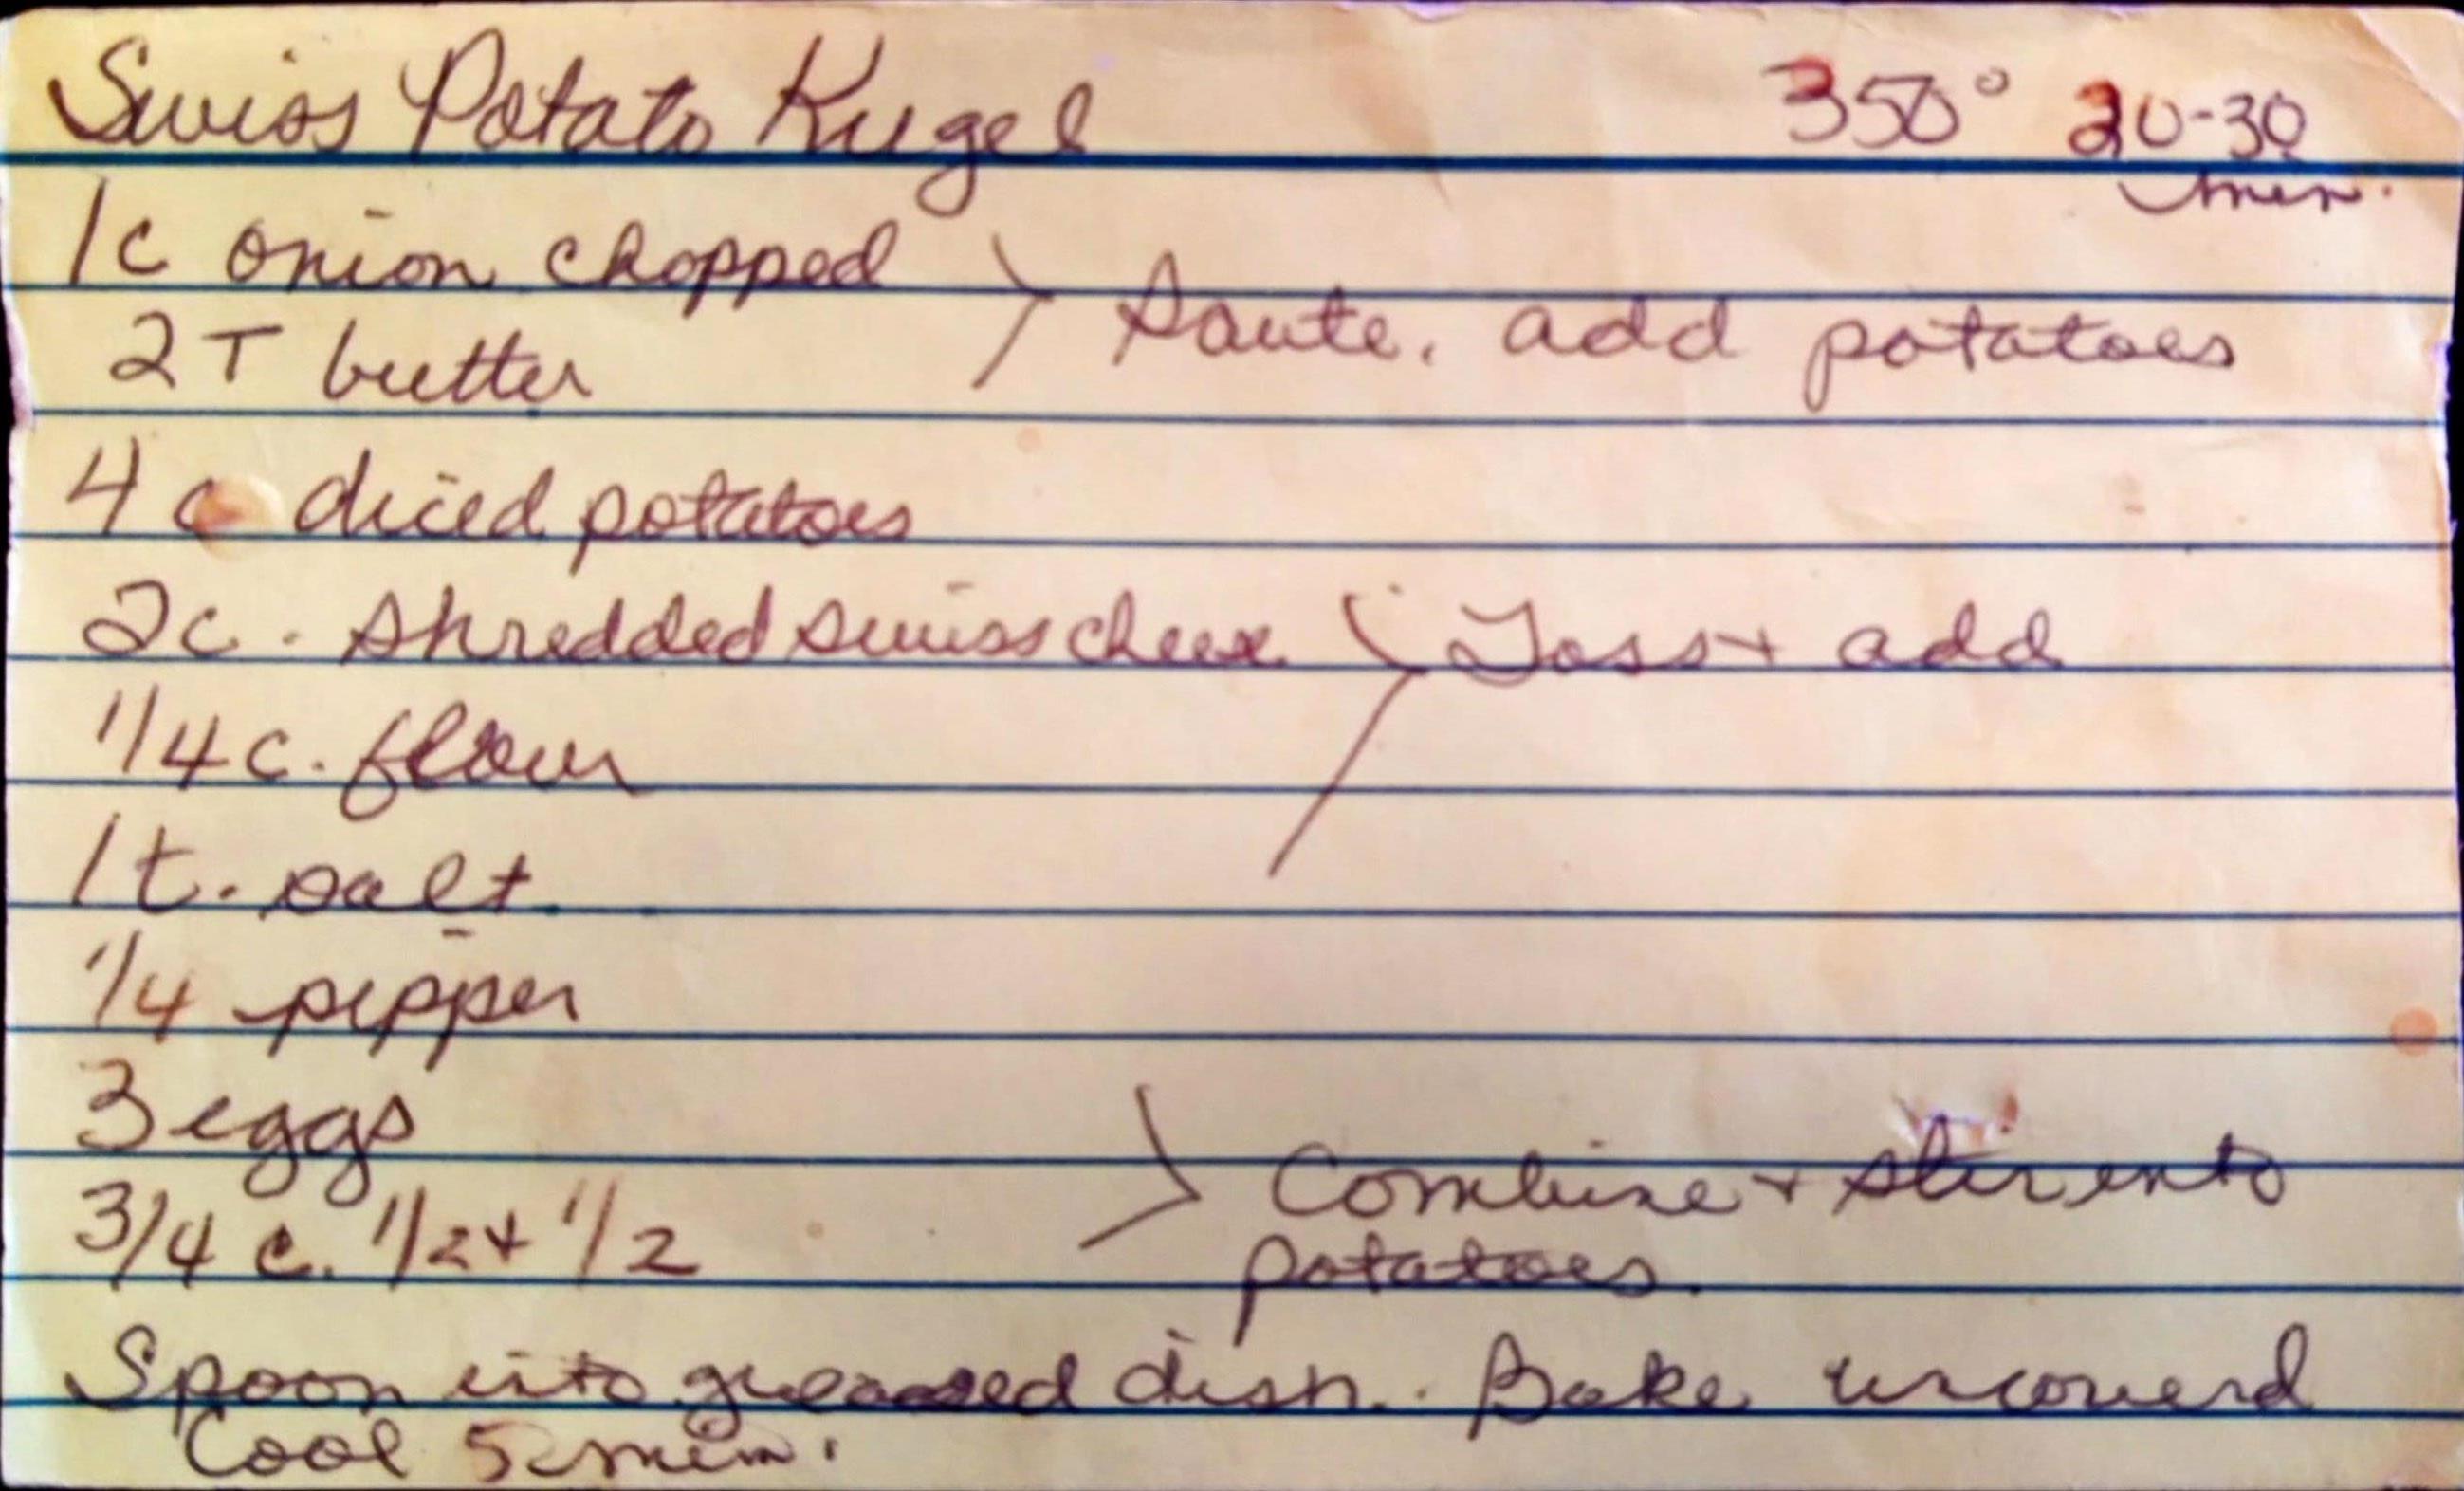 Swiss Potato Kugel 350° 20-30 min.
1c onion chopped
2T butter
Saute. add potatoes
4c diced potatoes
2c. shredded swiss cheese
Toss + add
1/4 c. flour
1 t. salt
1/4 pepper
3 eggs
3/4 c. 1/2 + 1/2
Combine + stir into
potatoes.
Spoon into greased dish. Bake uncoverd
Cool 5 min.